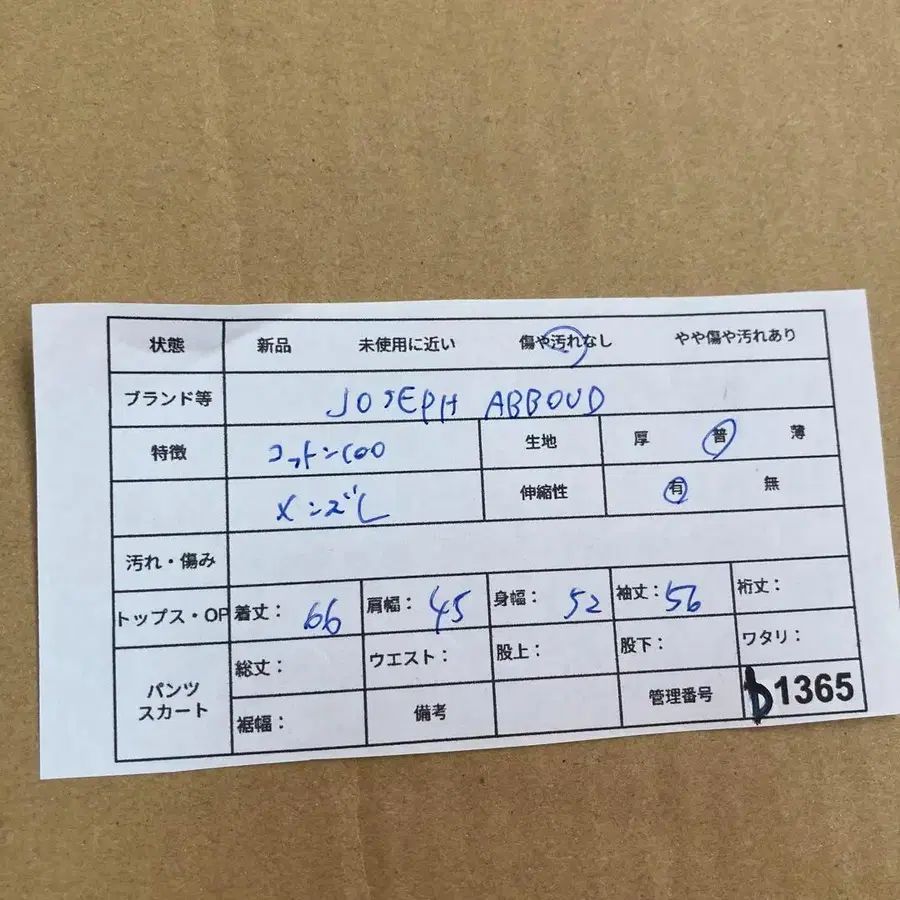 状態 新品 未使用に近い 傷や汚れなし やや傷や汚れあり
ブランド等 JOSEPH ABBOUD
特徴 コットン100 生地 厚 普 薄
メンズL 伸縮性 有 無
汚れ・傷み
トップス・OP 着丈: 66 肩幅: 45 身幅: 52 袖丈: 56 裄丈:
パンツ スカート 総丈: ウエスト: 股上: 股下: ワタリ:
裾幅: 備考 管理番号 b1365